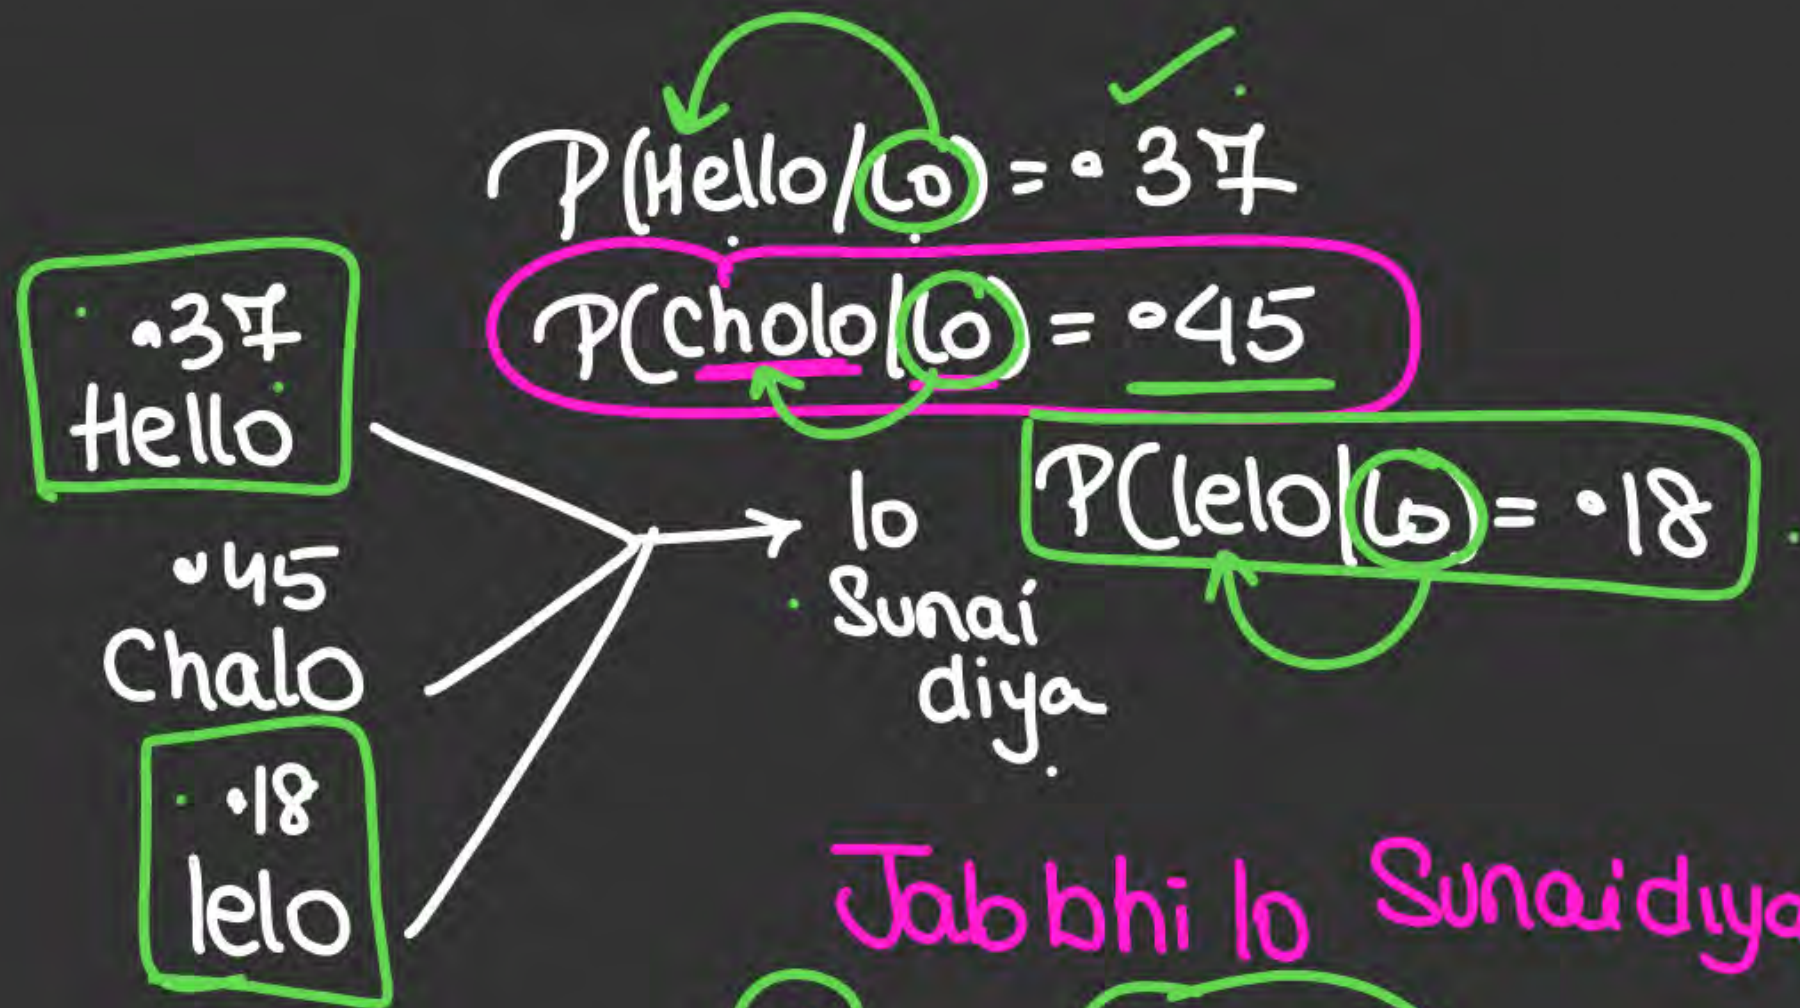 P(Hello/lo) = .37
P(Cholo|lo) = .45
P(lelo|lo) = .18
.37
Hello
.45
Chalo
.18
lelo
lo
Sunai
diya
Jab bhi lo Sunaidiya